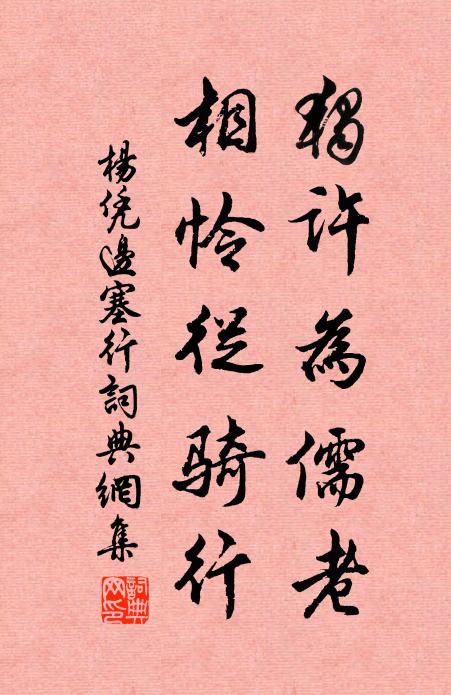 獨許為儒老
相怜從騎行
楊凭邊塞行詞典網集
詞典网印